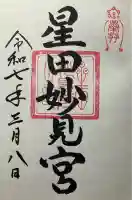 星田妙見宮
令和七年三月八日